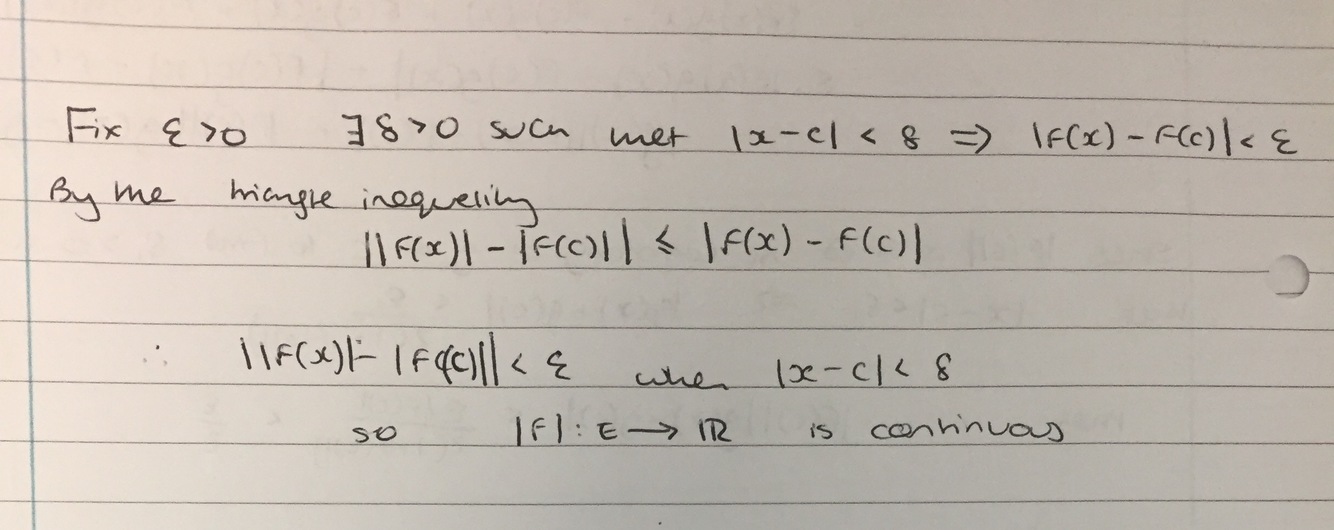 Fix ε>0 ∃δ>0 such that |x-c| < δ ⇒ |f(x) - f(c)| < ε
By the triangle inequality
||f(x)| - |f(c)|| ≤ |f(x) - f(c)|
∴ ||f(x)| - |f(c)|| < ε when |x-c| < δ
so |f| : E → ℝ is continuous